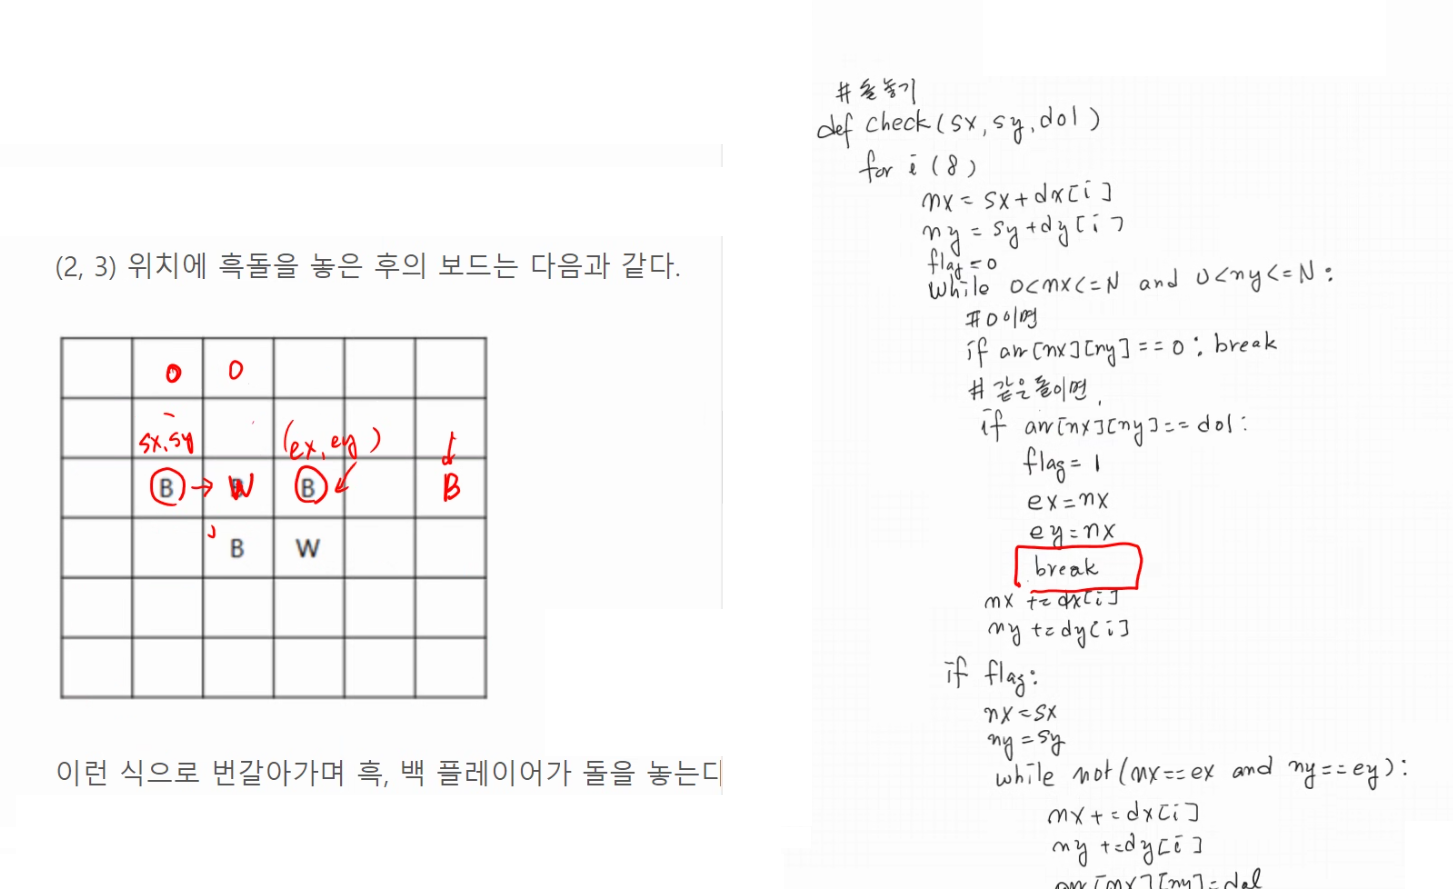 (2, 3) 위치에 흑돌을 놓은 후의 보드는 다음과 같다.
0 0
sx,sy (ex,ey)
B → W B B
B W
이런 식으로 번갈아가며 흑, 백 플레이어가 돌을 놓는다
# 돌놓기
def check(sx,sy,dol)
for i (8)
nx = sx+dx[i]
ny = sy+dy[i]
flag=0
while 0<nx<=N and 0<ny<=N:
#0이면
if arr[nx][ny]==0: break
# 같은돌이면,
if arr[nx][ny]==dol:
flag=1
ex=nx
ey=nx
break
nx +=dx[i]
ny +=dy[i]
if flag:
nx=sx
ny=sy
while not(nx==ex and ny==ey):
nx+=dx[i]
ny +=dy[i]
arr[nx][ny]=dol